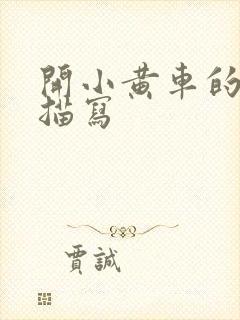 開小黄車的
描寫
賈誠